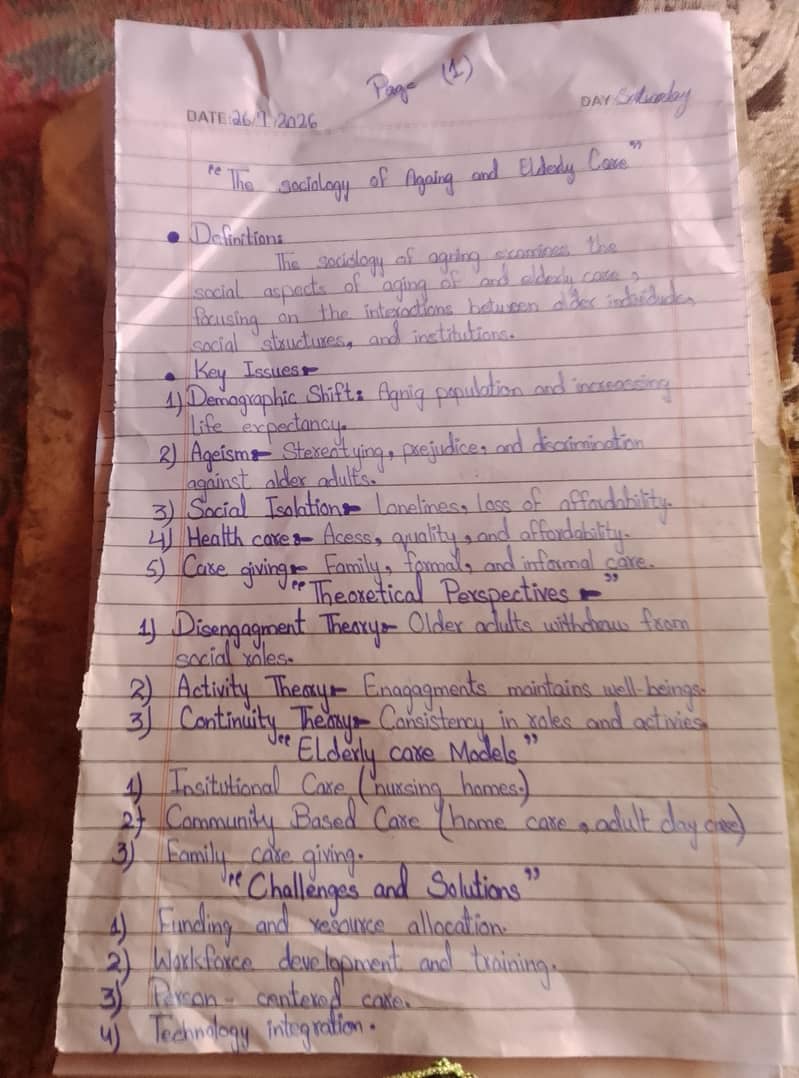 Page (1)
DATE: 26/9/2026 DAY: Saturday
"The sociology of Againg and Elderly Care"
• Definition:
The sociology of agring examines the
social aspects of aging of and elderly care,
focusing on the interactions between older individuals,
social structures, and institutions.
• Key Issues:-
1) Demographic Shift: Agnig population and increassing
life expectancy.
2) Ageism:- Stereotying, prejudice, and discrimination
against older adults.
3) Social Isolation:- Lonelines, loss of affordability.
4) Health care:- Acess, quality, and affordability.
5) Care giving:- Family, formal, and informal care.
"Theoretical Perspectives :-"
1) Disengagment Theory:- Older adults withdraw from
social roles.
2) Activity Theory:- Enagagments maintains well-beings.
3) Continuity Theory:- Consistency in roles and activies.
"Elderly care Models"
1) Insitutional Care (nursing homes.)
2) Community Based Care (home care, adult day care)
3) Family care giving.
"Challenges and Solutions"
1) Funding and resource allocation.
2) Workforce development and training.
3) Person - centered care.
4) Technology integration.